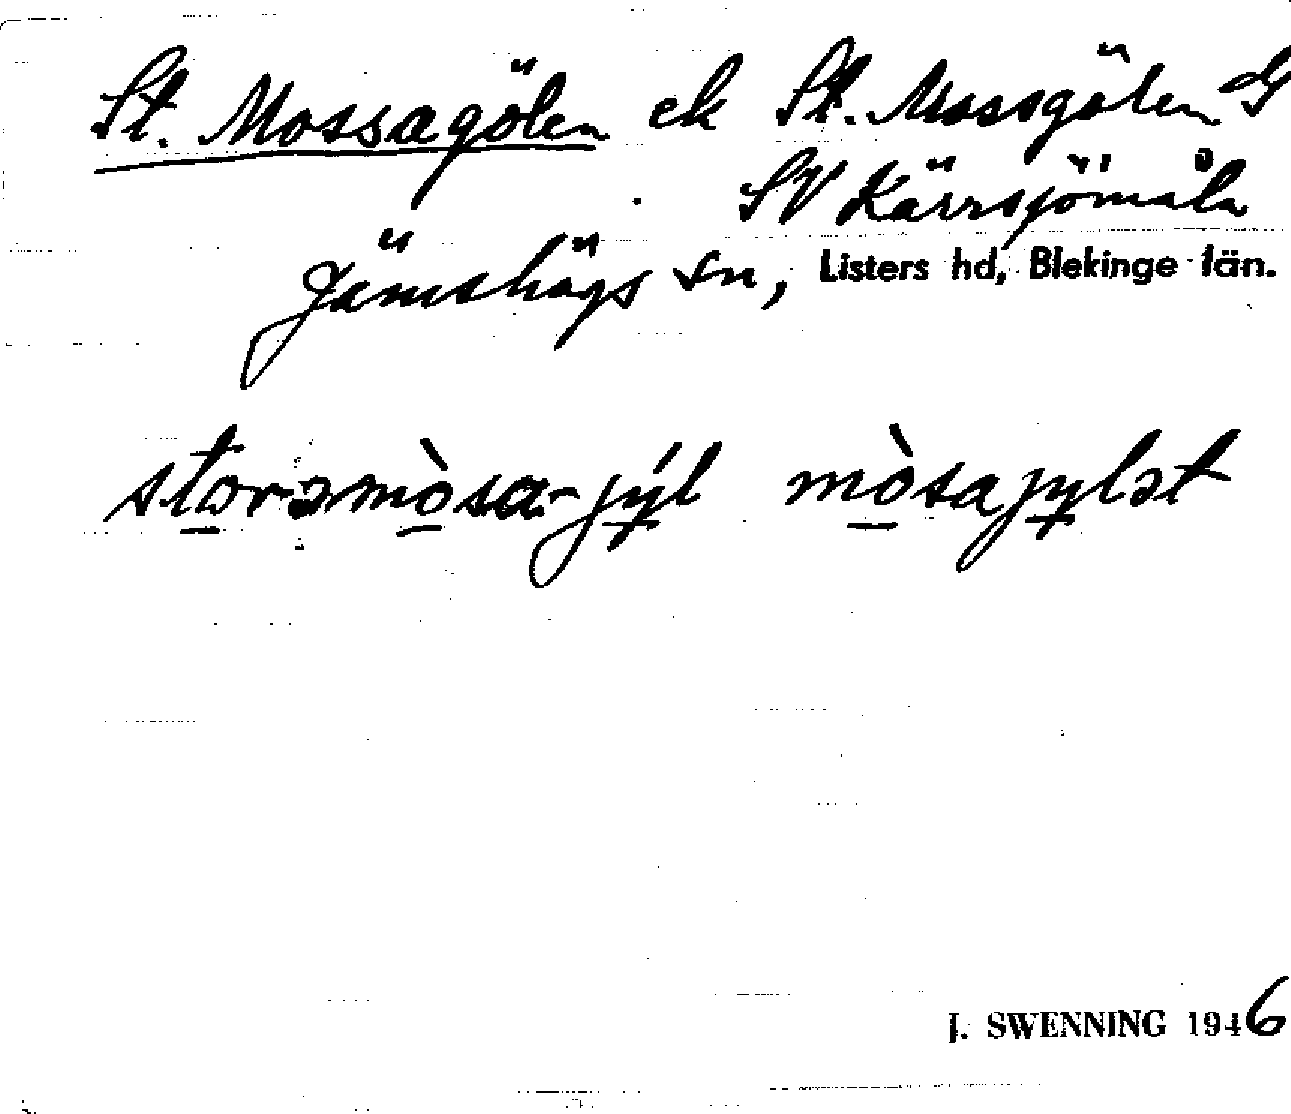 St. Mossagölen ek St. Mossgölen G
SV Kärrsjömåla
Jämshögs sn, Listers hd, Blekinge län.
storəmòsa-jýl mòsajylət
J. SWENNING 1946